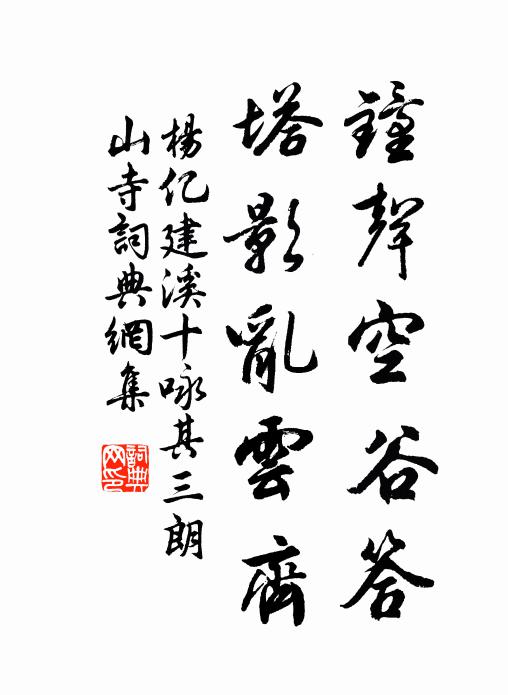 鐘聲空谷答
塔影亂雲齊
楊亿建溪十咏其三朗
山寺詞典網集
詞典网印